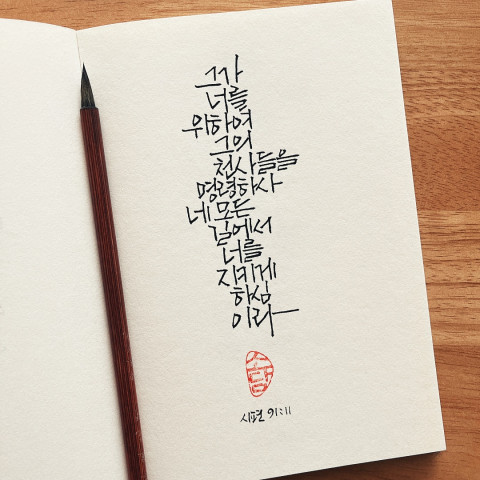 그가
너를
위하여
그의
천사들을
명령하사
네 모든
길에서
너를
지키게
하심
이라
시편 91:11